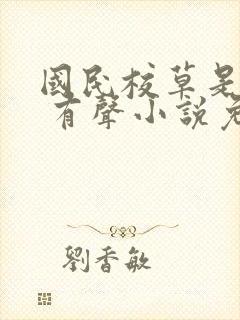 國民校草是
有聲小說免
劉香敏